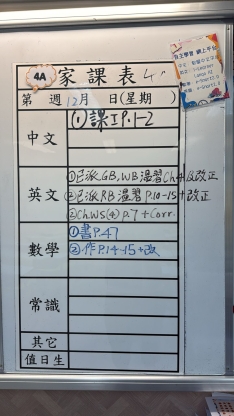 4A 家課表
第 週 12月 日(星期 )
中文
①課工P.1-2
英文
①已派GB, WB 溫習Ch.4及改正
②已派RB 溫習 P.10-15+改正
③Ch.WS(4) p.7 + Corr.
數學
①書P.47
②作P.14-15+改
常識
其它
值日生
自主學習 網上平台